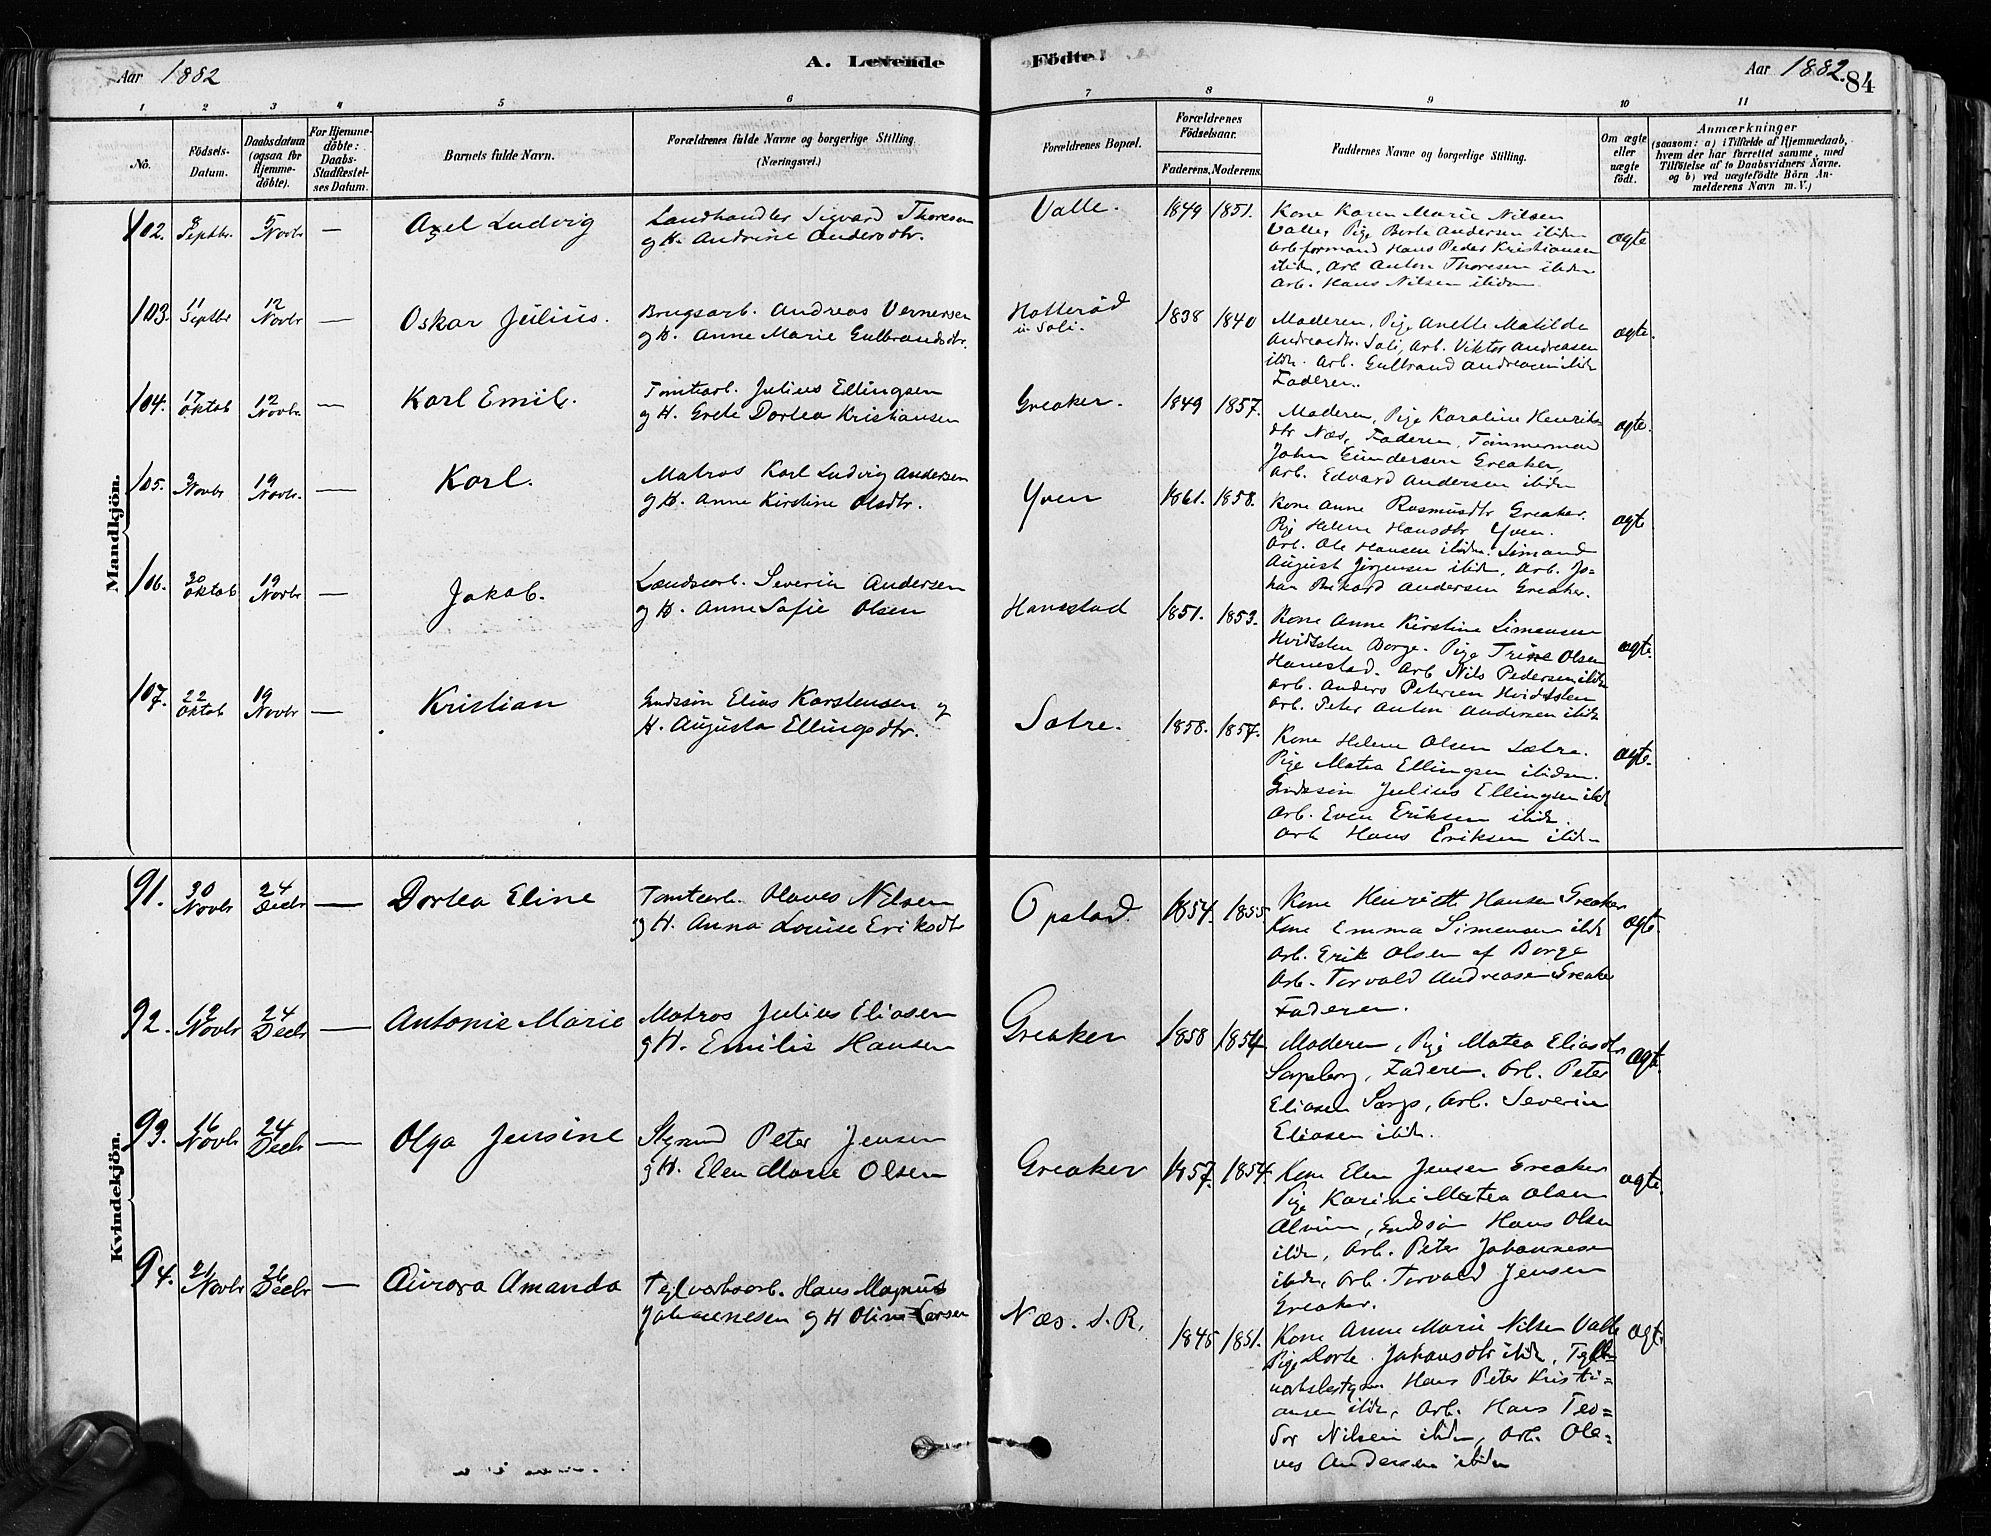 Aar 1882
A. Levende
Födte.
Aar 1882.
84
1 2 3 4 5 6 7 8 9 10 11
No.
Födsels-
Datum.
Daabsdatum
(ogsaa for
Hjemme-
döbte).
For Hjemme-
döbte:
Daabs-
Stadfæstel-
ses Datum.
Barnets fulde Navn.
Forældrenes fulde Navne og borgerlige Stilling.
(Næringsvei.)
Forældrenes Bopæl.
Forældrenes
Födselsaar.
Faderens. Moderens.
Faddernes Navne og borgerlige Stilling.
Om ægte
eller
uægte
födt.
Anmærkninger
(saasom: a) i Tilfælde af Hjemmedaab,
hvem der har forrettet samme, med
Tilföielse af to Daabsvidners Navne.
og b) ved uægtefödte Börn An-
melderens Navn m. V.)
Mandkjön.
102. 8 Septbr. 5 Novbr — Axel Ludvig
Landhandler Sigvard Thoresen
og H. Andrine Andersdtr.
Valle. 1849 1851.
Kone Karen Marie Nilsen
Valle, Pige Berte Andersen itiden
Arbformand Hans Peder Kristiansen
itidn, Arb. Anton Thoresen itiden
Arb. Hans Nilsen itiden
ægte
103. 11 Septbr 12 Novbr — Oskar Julius.
Brugsarb. Andreas Vernersen
og H. Anne Marie Gulbrandsdtr.
Hatteröd
in Soli.
1838 1840
Moderen, Pige Anette Matilde
Andreasdtr. Soli, Arb. Viktor Andreasen
itidn. Arb. Gulbrand Andreasen itidn
Faderen.
ægte.
104. 17 Oktob 12 Novbr — Karl Emil.
Tomtearb. Julius Ellingsen
og H. Grete Dortea Kristiansen
Greaker. 1849 1857.
Moderen, Pige Karoline Henriks-
dtr Næs, Faderen, Tömmermand
Johan Gundersen Greaker,
Arb. Edvard Andersen itiden
ægte.
105. 3 Novbr 19 Novbr. — Karl.
Matros Karl Ludvig Andersen
og H. Anne Kirstine Olsdtr.
Yven 1861. 1858.
Kone Anne Rasmusdtr Greaker.
Pige Helene Hansdtr Yven.
Arb. Ole Hansen itidn. Simand
August Jörgensen itidn, Arb. Jo-
han Rikard Andersen Greaker.
ægte
106. 30 Oktob 19 Novbr — Jakob.
Landsarb. Severin Andersen
og H. Anne Sofie Olsen
Hanestad 1851. 1853.
Kone Anne Kirstine Simensen
Hvidsten Borge. Pige Trine Olsen
Hanestad. Arb Nils Pedersen itidn
Arb. Anders Petersen Hvidsten
Arb. Peter Anton Andersen itidn
ægte.
107. 22 Oktob 19 Novbr — Kristian
Grdssön Elias Karstensen og
H. Augusta Ellingsdtr.
Satre. 1858. 1857.
Kone Helene Olsen Sætre.
Pige Matea Ellingsen itiden.
Grdssön Julius Ellingsen itidn
Arb. Even Eriksen itidn.
Arb Hans Eriksen itidn
ægte.
Kvindekjön.
91. 30 Novbr 24 Decbr — Dortea Eline
Tomtearb. Olaves Nilsen
og H. Anna Louise Eriksdtr
Opstad. 1854. 1855.
Kone Henriette Hansen Greaker
Kone Emma Simensen itidn
Arb. Erik Olsen af Borge
Arb. Torvald Andreasen Greaker
Faderen.
ægte.
92. 12 Novbr 24 Decbr — Antonie Marie
Matros Julius Eliasen
og H. Emilie Hansen
Greaker 1858 1854
Moderen, Pige Matea Eliasdtr
Sarpsborg, Faderen. Arb. Peter
Eliasen Sarps, Arb. Severin
Eliasen itidn.
ægte.
93. 16 Novbr 24 Decbr — Olga Jensine
Styrmd Peter Jensen
og H. Elen Marie Olsen
Greaker 1857. 1854.
Kone Elen Jensen Greaker
Pige Karine Matea Olsen
Alvim, Grdssön Hans Olsen
itidn, Arb. Peter Johannesen
itidn, Arb. Torvald Jensen
Greaker.
ægte.
94. 21 Novbr 26 Decbr — Aurora Amanda
Teglværksarb. Hans Magnus
Johannesen og H Oline Larsen
Næs. S. R. 1845 1851.
Kone Anne Marie Nilsen Valle
Pige Dorte Johansdtr itidn, Tegl-
værksbestyrer Hans Peter Kristi-
ansen itidn, Arb. Hans Teo-
dor Nilsen itiden, Arb. Ola-
ves Andersen itiden
ægt.